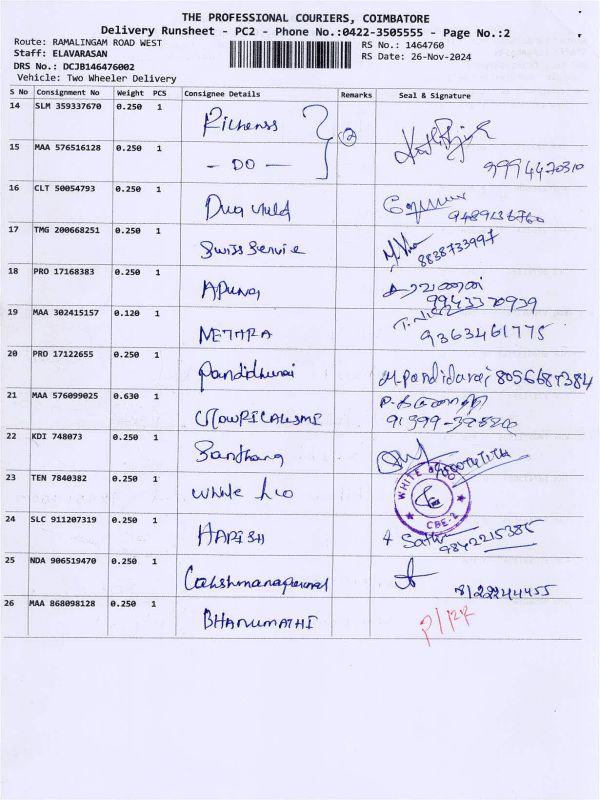 THE PROFESSIONAL COURIERS, COIMBATORE
Delivery Runsheet - PC2 - Phone No.:0422-3505555 - Page No.:2
Route: RAMALINGAM ROAD WEST
Staff: ELAVARASAN
DRS No.: DCJB146476002
Vehicle: Two Wheeler Delivery
RS No.: 1464760
RS Date: 26-Nov-2024
S No Consignment No Weight PCS Consignee Details Remarks Seal & Signature
14 SLM 359337670 0.250 1 2
15 MAA 576516128 0.250 1 - DO - 9994470310
16 CLT 50054793 0.250 1 9489136760
17 TMG 200668251 0.250 1 Swiss Service 8838733997
18 PRO 17168383 0.250 1 9943370939
19 MAA 302415157 0.120 1 NETHRA 9363461775
20 PRO 17122655 0.250 1 Pandidurai M.Pandidurai 8056687384
21 MAA 576099025 0.630 1
22 KDI 748073 0.250 1
23 TEN 7840382 0.250 1 White WHITE CBE-2
24 SLC 911207319 0.250 1 HARISH 9842215385
25 NDA 906519470 0.250 1 Lakshmanaperumal 8122244455
26 MAA 868098128 0.250 1 BHANUMATHI